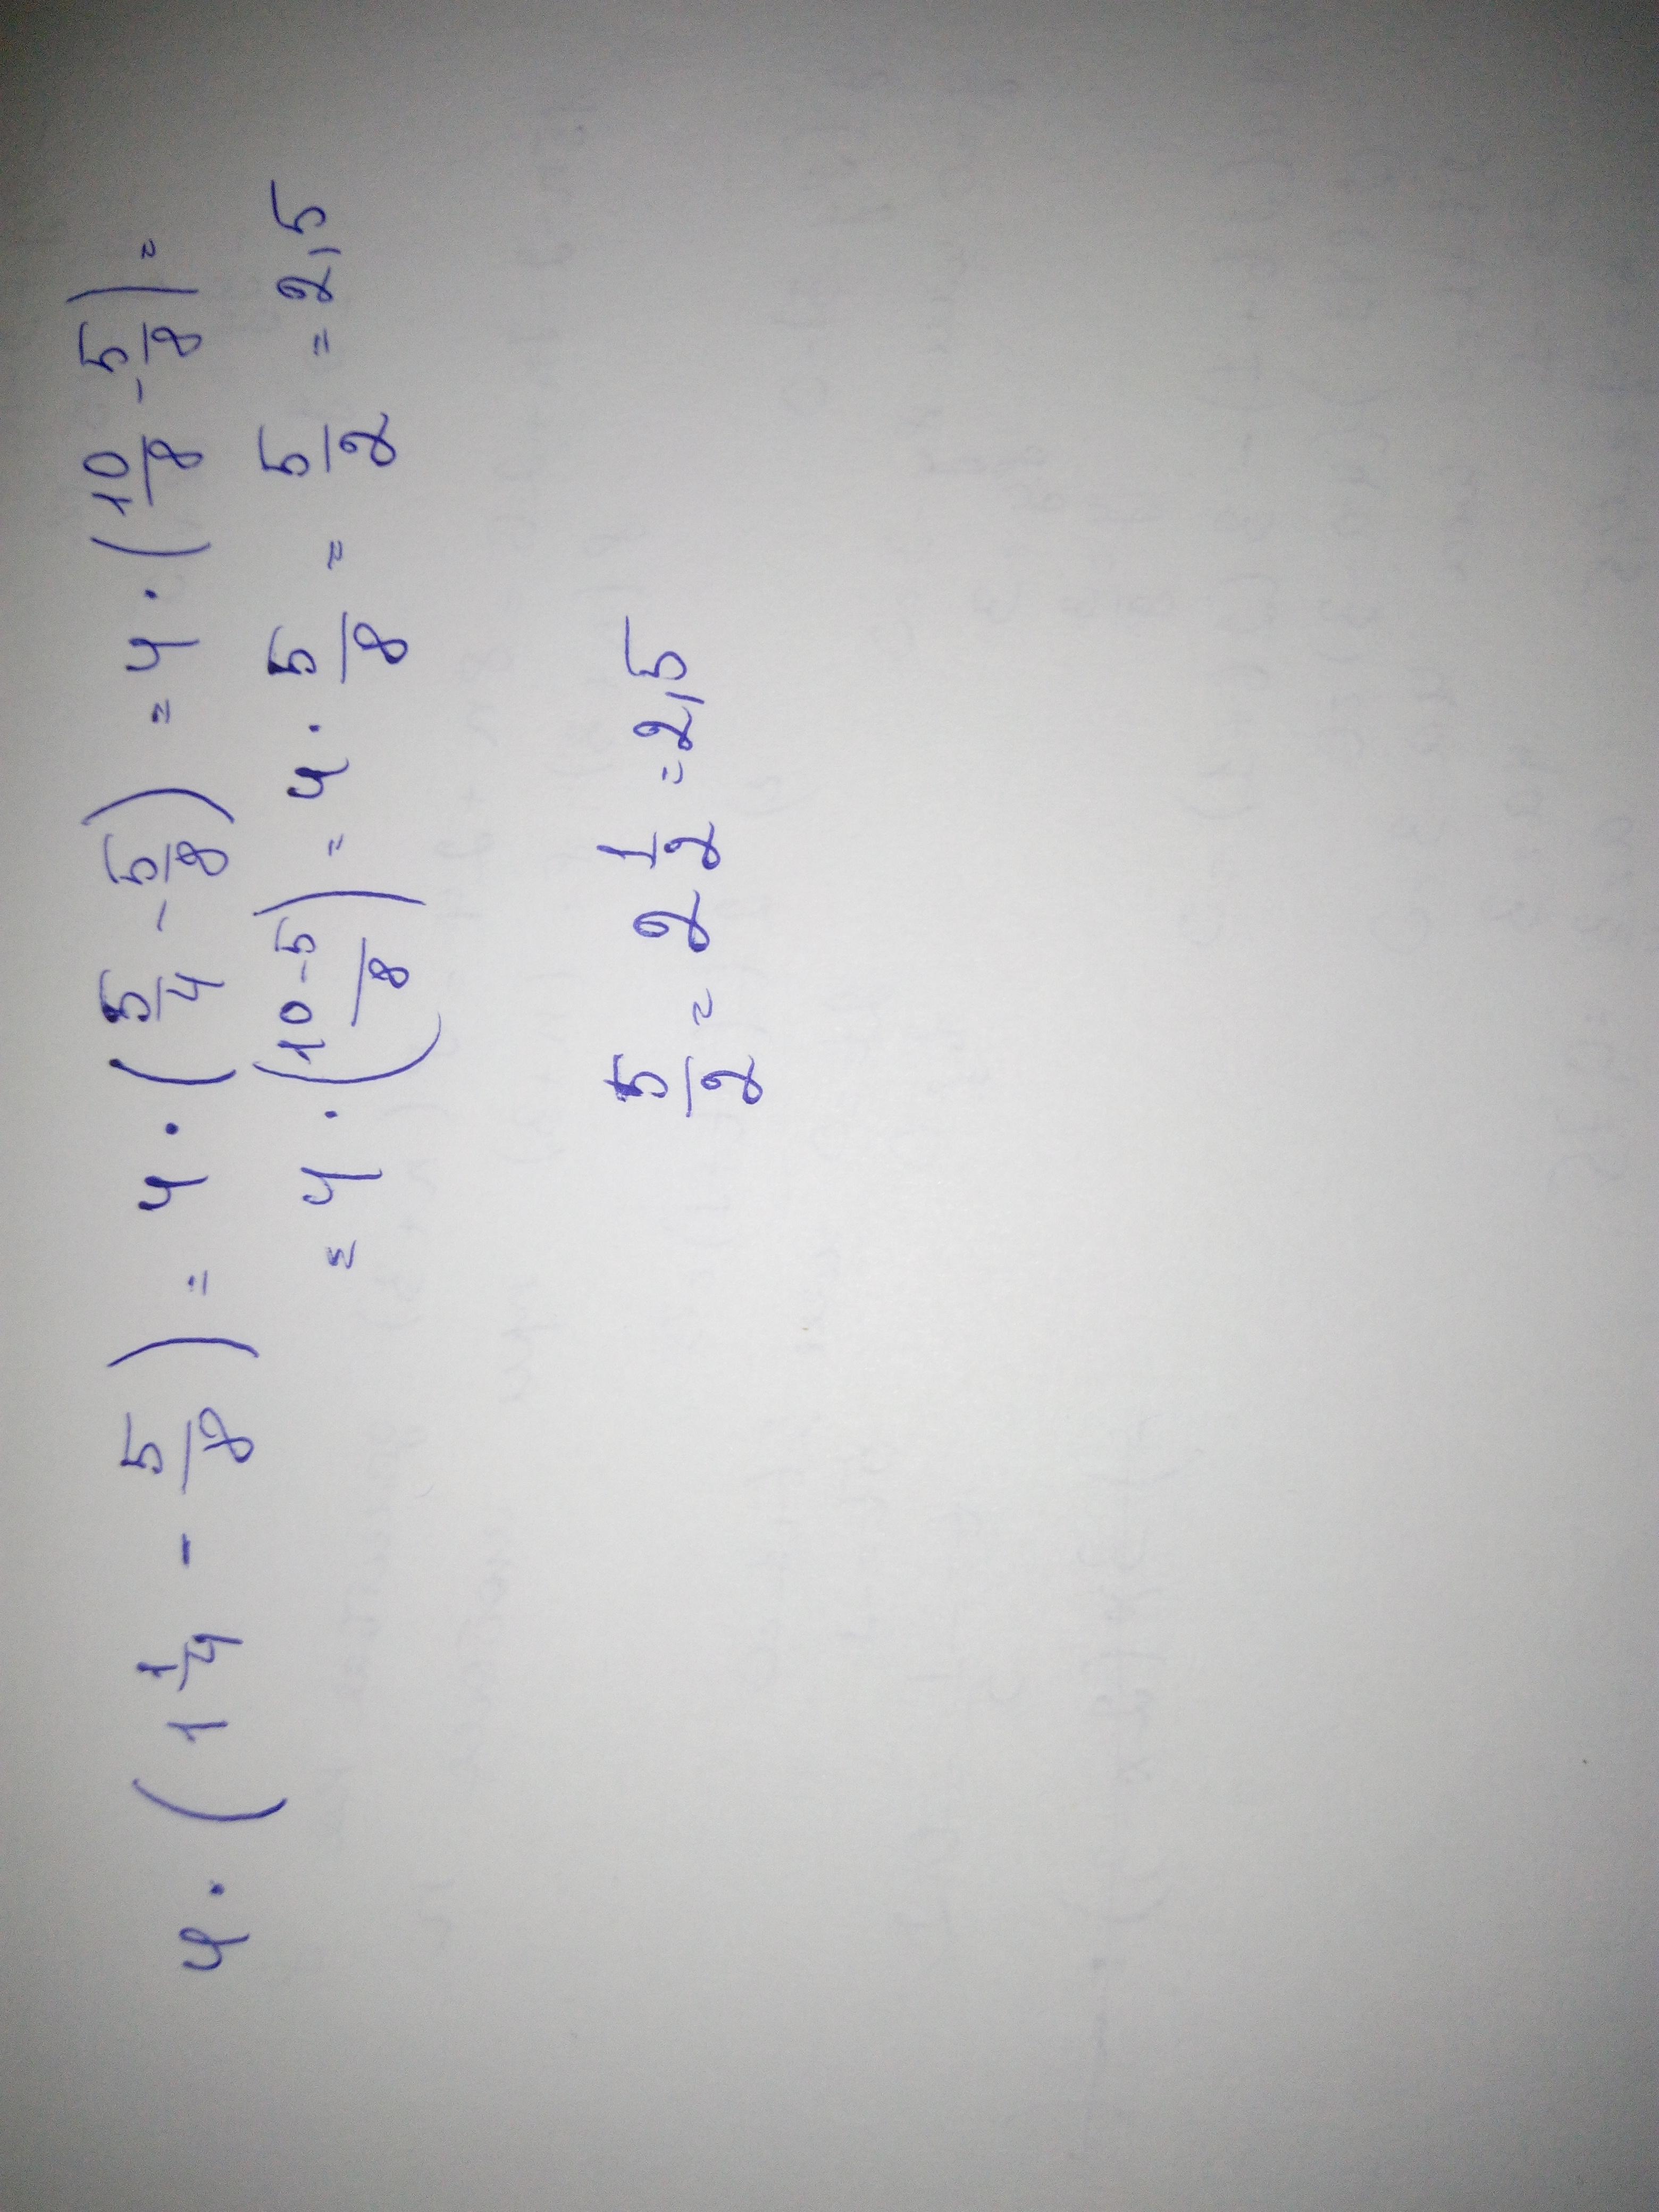 4 · (1 1/4 - 5/8) = 4 · (5/4 - 5/8) = 4 · (10/8 - 5/8) =
= 4 · (10-5/8) = 4 · 5/8 = 5/2 = 2,5
5/2 = 2 1/2 = 2,5